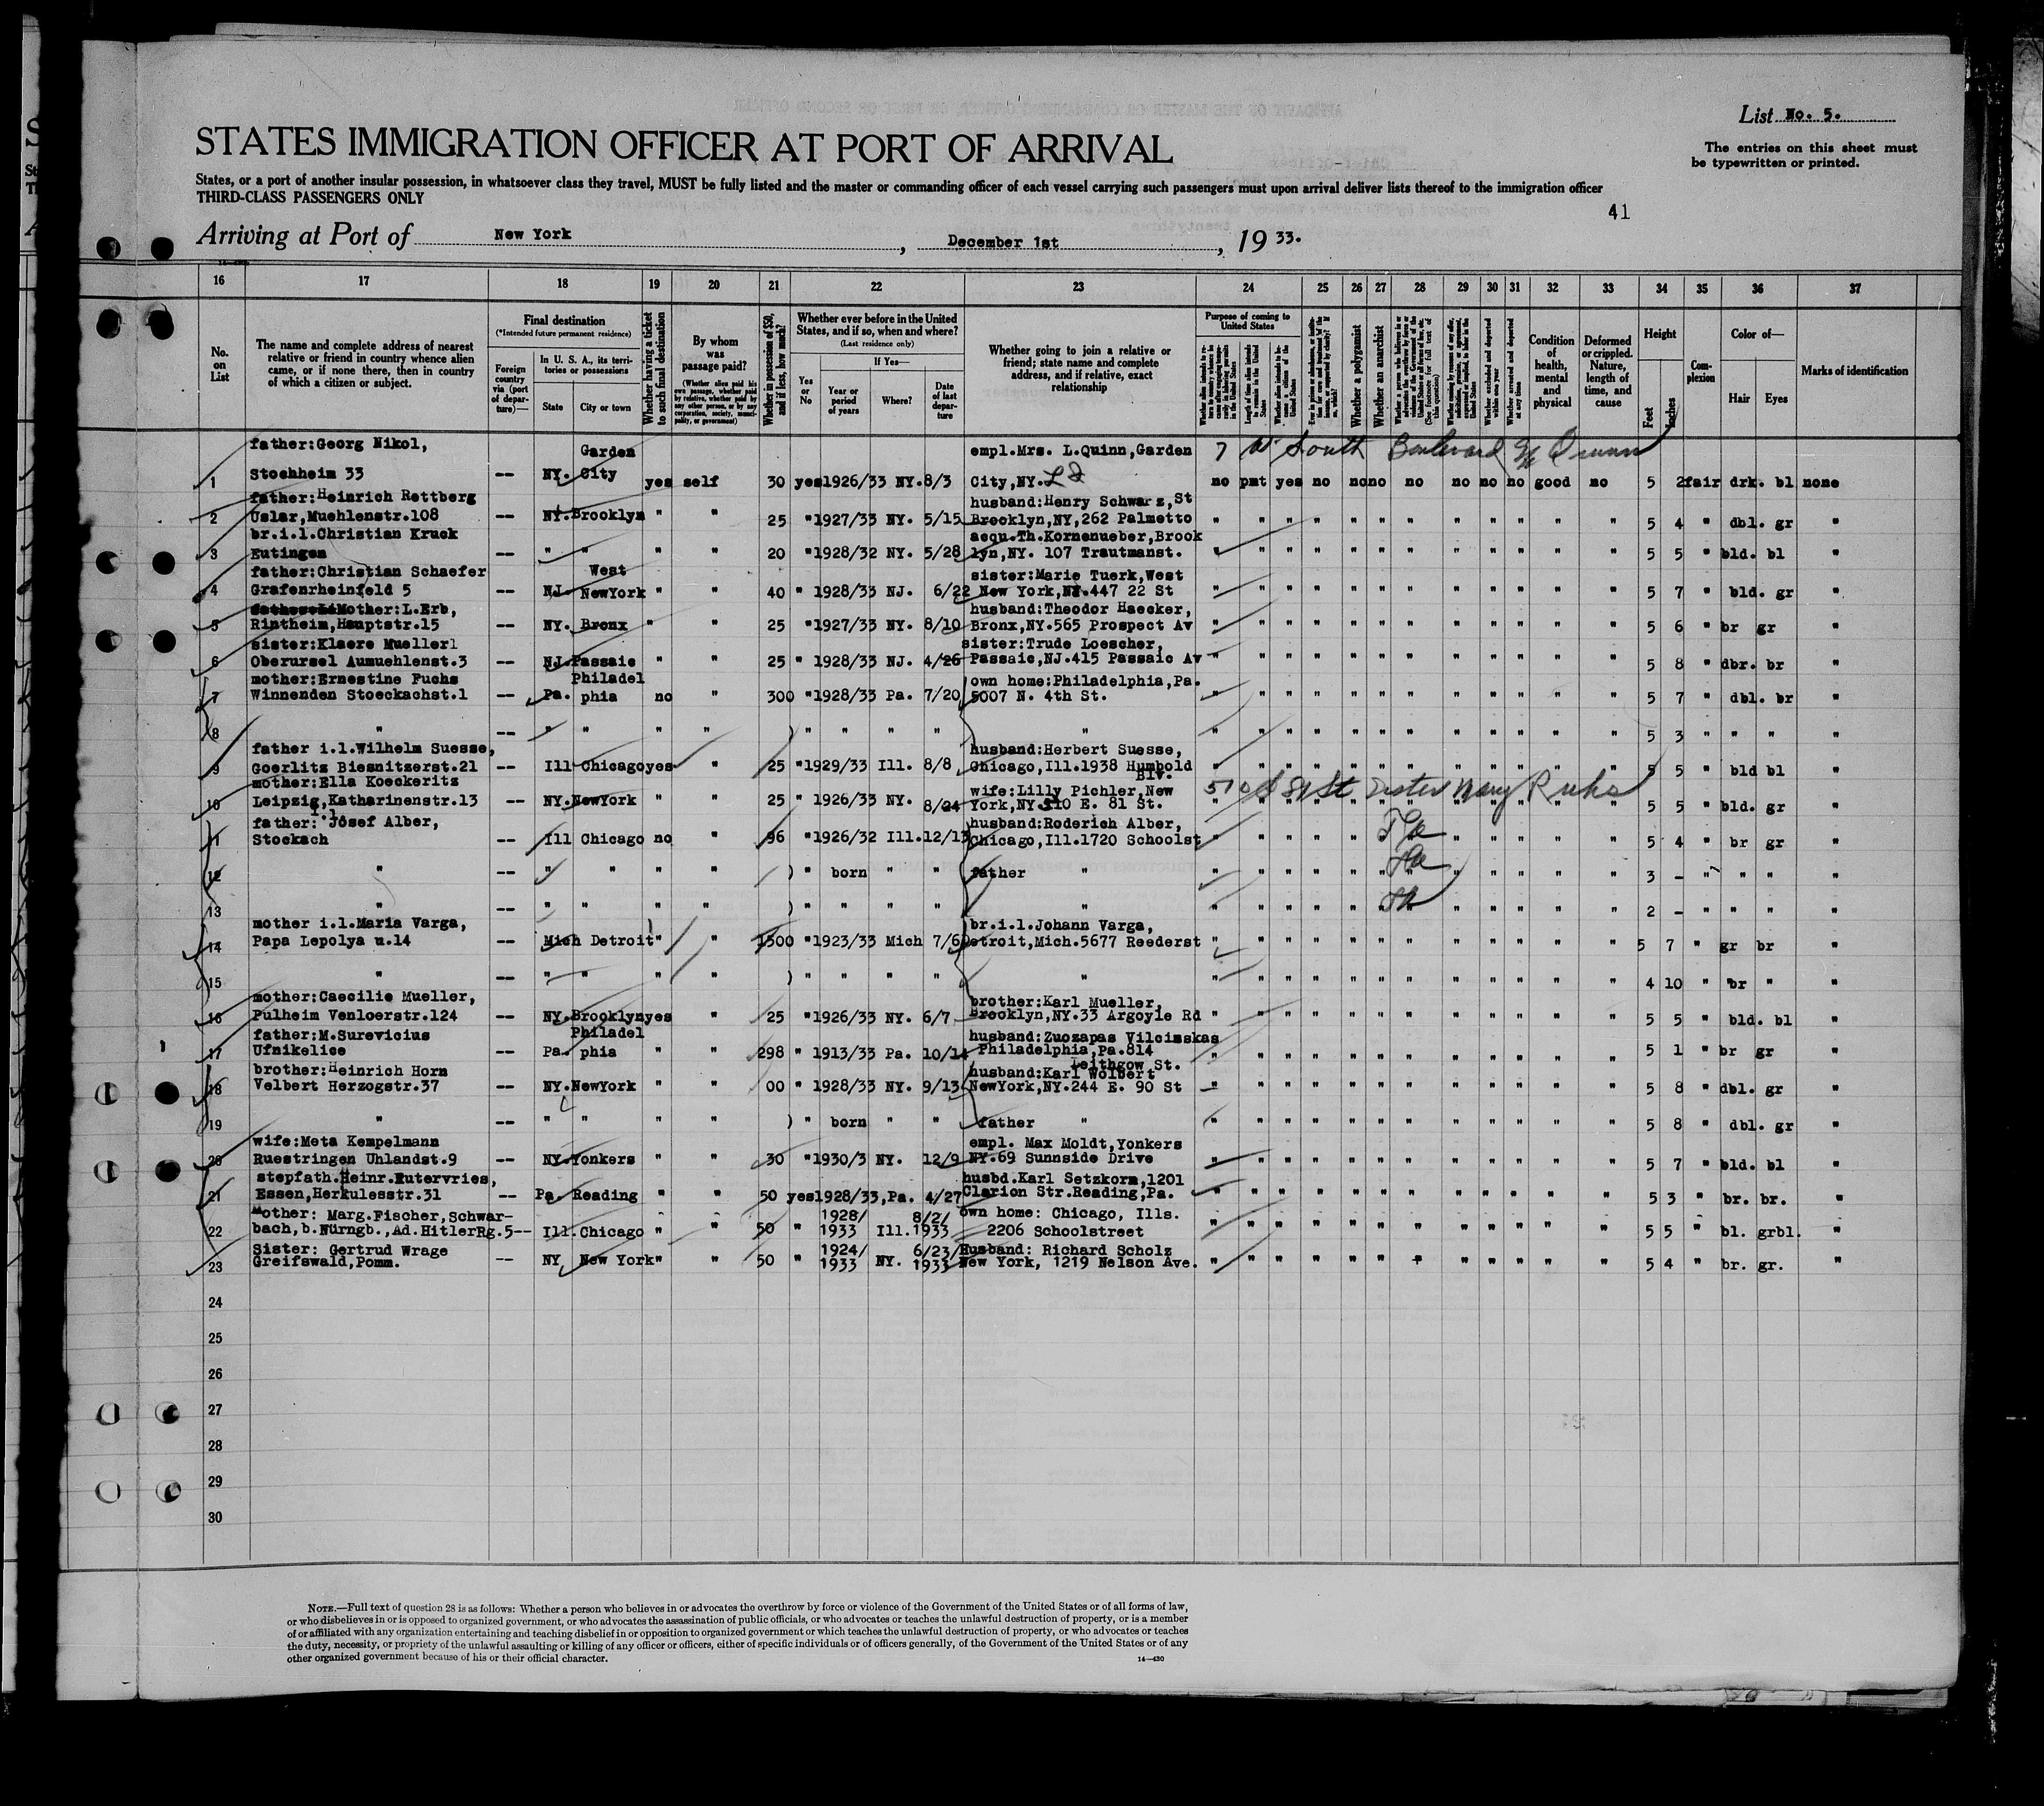 List No. 5.
The entries on this sheet must
be typewritten or printed.
STATES IMMIGRATION OFFICER AT PORT OF ARRIVAL
States, or a port of another insular possession, in whatsoever class they travel, MUST be fully listed and the master or commanding officer of each vessel carrying such passengers must upon arrival deliver lists thereof to the immigration officer
THIRD-CLASS PASSENGERS ONLY
41
Arriving at Port of New York, December 1st, 19 33.
16 17 18 19 20 21 22 23 24 25 26 27 28 29 30 31 32 33 34 35 36 37
No. on List
The name and complete address of nearest relative or friend in country whence alien came, or if none there, then in country of which a citizen or subject.
Final destination
(*Intended future permanent residence)
Foreign country via (port of departure)—
In U. S. A., its territories or possessions
State City or town
Whether having a ticket to such final destination
By whom was passage paid?
(Whether alien paid his own passage, whether paid by relative, whether paid by any other person, or by any corporation, society, municipality, or government)
Whether in possession of $50, and if less, how much?
Whether ever before in the United States, and if so, when and where?
(Last residence only)
Yes or No
If Yes—
Year or period of years
Where?
Date of last departure
Whether going to join a relative or friend; state name and complete address, and if relative, exact relationship
Purpose of coming to United States
Whether a polygamist
Whether an anarchist
Condition of health, mental and physical
Deformed or crippled. Nature, length of time, and cause
Height
Feet Inches
Complexion
Color of—
Hair Eyes
Marks of identification
father:Georg Nikol, Garden empl.Mrs. L.Quinn,Garden 7 W South Boulevard
1 Stochheim 33 -- NY. City yes self 30 yes 1926/33 NY. 8/3 City,NY. no pmt yes no no no no no no no good no 5 2 fair drk. bl none
father:Heinrich Rettberg husband:Henry Schwarz,St
2 Uslar,Muehlenstr.108 -- NY. Brooklyn " " 25 " 1927/33 NY. 5/15 Brooklyn,NY,262 Palmetto " " " " " " " " " " " " 5 4 " dbl. gr "
br.i.l.Christian Kruck acqu.Th.Kornenueber,Brook
3 Eutingen -- " " " " 20 " 1928/32 NY. 5/28 lyn,NY. 107 Trautmanst. " " " " " " " " " " " 5 5 " bld. bl "
father:Christian Schaefer West sister:Marie Tuerk,West
4 Grafenrheinfeld 5 -- NJ. NewYork " " 40 " 1928/33 NJ. 6/22 New York,NJ.447 22 St " " " " " " " " " " " " 5 7 " bld. gr "
Mother:L.Erb, husband:Theodor Haecker,
5 Rintheim,Hauptstr.15 -- NY. Bronx " " 25 " 1927/33 NY. 8/10 Bronx,NY.565 Prospect Av " " " " " " " " " " " " 5 6 " br gr "
sister:Klaere Muellerl sister:Trude Loescher,
6 Oberursel Aumuehlenst.3 -- NJ. Passaic " " 25 " 1928/33 NJ. 4/26 Passaic,NJ.415 Passaic Av " " " " " " " " " " " " 5 8 " dbr. br "
mother:Ernestine Fuchs Philadel own home:Philadelphia,Pa.
7 Winnenden Stoeckachst.1 -- Pa. phia no " 300 " 1928/33 Pa. 7/20 5007 N. 4th St. " " " " " " " " " " " " 5 7 " dbl. br "
8 " -- " " " " ) " " " " " " " " " " " " " " " " " 5 3 " " " "
father i.l.Wilhelm Suesse, husband:Herbert Suesse,
9 Goerlitz Biesnitzerst.21 -- Ill Chicago yes " 25 " 1929/33 Ill. 8/8 Chicago,Ill.1938 Humbold " " " " " " " " " " " " 5 5 " bld bl "
Blv.
mother:Ella Koeckeritz wife:Lilly Pichler,New 510 E 81 St Sister Mary
10 Leipzig,Katharinenstr.13 -- NY. NewYork " " 25 " 1926/33 NY. 8/24 York,NY.510 E. 81 St. " " " " " " " " " " " " 5 5 " bld. gr "
father: i.l. Josef Alber, husband:Roderich Alber,
11 Stockach -- Ill Chicago no " 96 " 1926/32 Ill. 12/13 Chicago,Ill.1720 Schoolst " " " " " " " " " " " 5 4 " br gr "
12 " -- " " " " ) " born " " father " " " " " " " " " " " " 3 - " " " "
13 " -- " " " " ) " " " " " " " " " " " " " " " 2 - " " " "
mother i.l.Maria Varga, br.i.l.Johann Varga,
14 Papa Lepolya u.14 -- Mich Detroit " " 1500 " 1923/33 Mich 7/6 Detroit,Mich.5677 Reederst " " " " " " " " " " " " 5 7 " gr br "
15 " -- " " " " ) " " " " " " " " " " " " " " " " " 4 10 " br " "
mother:Caecilie Mueller, brother:Karl Mueller,
16 Pulheim Venloerstr.124 -- NY. Brooklyn yes " 25 " 1926/33 NY. 6/7 Brooklyn,NY.33 Argoyle Rd " " " " " " " " " " " " 5 5 " bld. bl "
father:M.Surevicius Philadel husband:Zuozapas Vilcinskas
17 Ufnikelice -- Pa. phia " " 298 " 1913/33 Pa. 10/14 Philadelphia,Pa.814 " " " " " " " " " " " " 5 1 " br gr "
Leithgow St.
brother:Heinrich Horn husband:Karl Wolbert
18 Velbert Herzogstr.37 -- NY. NewYork " " 00 " 1928/33 NY. 9/13 NewYork,NY.244 E. 90 St " " " " " " " " " " " " 5 8 " dbl. gr "
19 " -- " " " " ) " born " " father " " " " " " " " " " " " " 5 8 " dbl. gr "
wife:Meta Kempelmann empl. Max Moldt,Yonkers
20 Ruestringen Uhlandst.9 -- NY. Yonkers " " 30 " 1930/3 NY. 12/9 NY.69 Sunnside Drive " " " " " " " " " " " " 5 7 " bld. bl "
stepfath.Heinr.Rutervries, husbd.Karl Setzkorn,1201
21 Essen,Herkulesstr.31 -- Pa. Reading " " 50 yes 1928/33,Pa. 4/27 Clarion Str.Reading,Pa. " " " " " " " " " " " " 5 3 " br. br. "
Mother: Marg.Fischer,Schwar- 1928/ 8/2/ own home: Chicago, Ills.
22 bach,b.Nürngb.,Ad.HitlerRg.5-- Ill. Chicago " " 50 " 1933 Ill. 1933 2206 Schoolstreet " " " " " " " " " " " " 5 5 " bl. grbl. "
Sister: Gertrud Wrage 1924/ 6/23/ Husband: Richard Scholz
23 Greifswald,Pomm. -- NY New York " " 50 " 1933 NY. 1933 New York, 1219 Nelson Ave. " " " " " " " " " " " " 5 4 " br. gr. "
24
25
26
27
28
29
30
NOTE.—Full text of question 28 is as follows: Whether a person who believes in or advocates the overthrow by force or violence of the Government of the United States or of all forms of law,
or who disbelieves in or is opposed to organized government, or who advocates the assassination of public officials, or who advocates or teaches the unlawful destruction of property, or is a member
of or affiliated with any organization entertaining and teaching disbelief in or opposition to organized government or which teaches the unlawful destruction of property, or who advocates or teaches
the duty, necessity, or propriety of the unlawful assaulting or killing of any officer or officers, either of specific individuals or of officers generally, of the Government of the United States or of any
other organized government because of his or their official character.
14—430